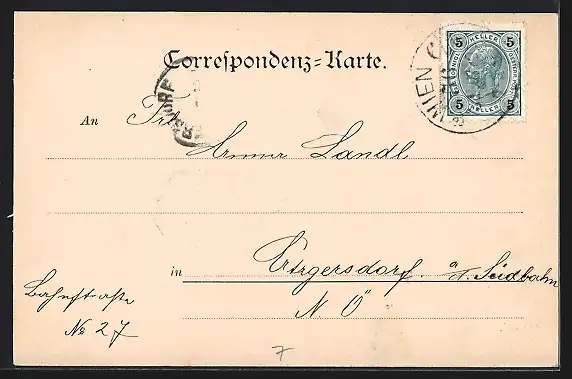 Correspondenz-Karte.
5 HELLER 5
5 HELLER 5
WIEN
An Frl.
Anna Landl
in Atzgersdorf. a/d. Südbahn
N Ö
Bahnstrasse
No 27
7